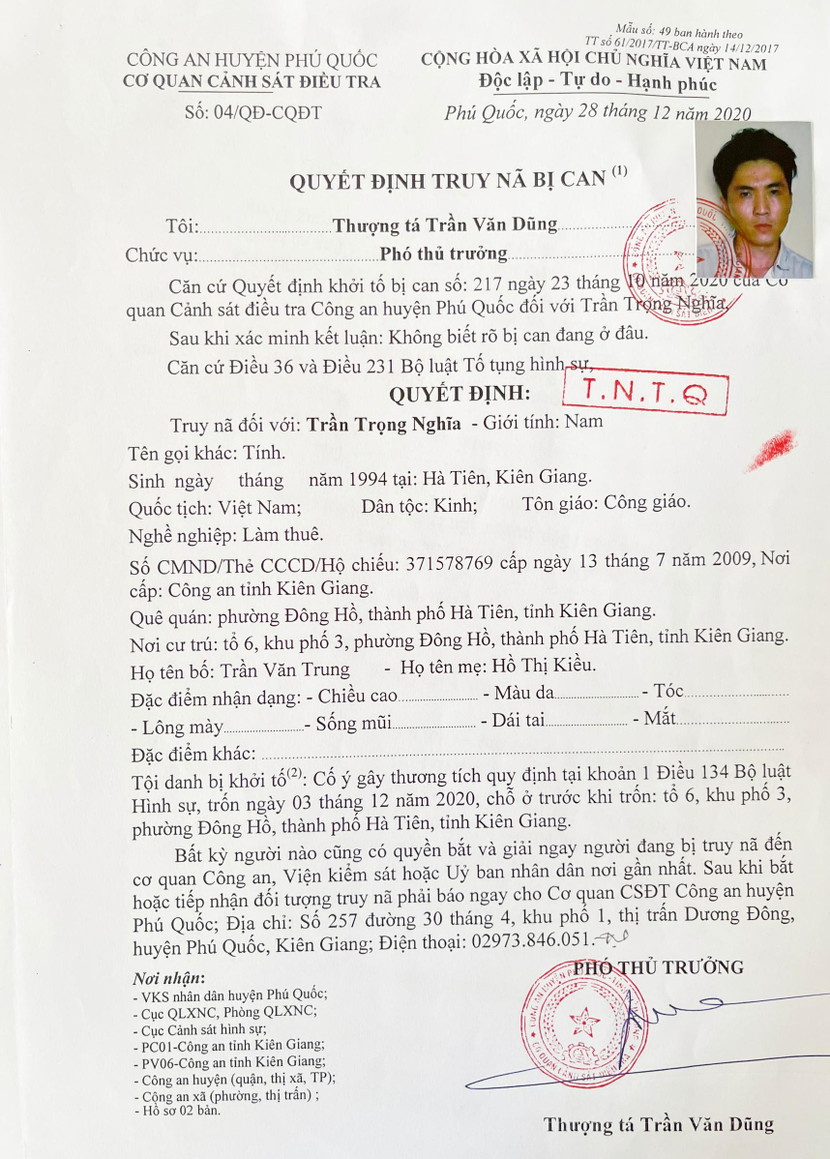 Mẫu số: 49 ban hành theo
TT số 61/2017/TT-BCA ngày 14/12/2017
CÔNG AN HUYỆN PHÚ QUỐC
CỘNG HÒA XÃ HỘI CHỦ NGHĨA VIỆT NAM
CƠ QUAN CẢNH SÁT ĐIỀU TRA
Độc lập - Tự do - Hạnh phúc
Số: 04/QĐ-CQĐT
Phú Quốc, ngày 28 tháng 12 năm 2020
QUYẾT ĐỊNH TRUY NÃ BỊ CAN (1)
Tôi:..............................Thượng tá Trần Văn Dũng..............................
Chức vụ:..............................Phó thủ trưởng..............................
Căn cứ Quyết định khởi tố bị can số: 217 ngày 23 tháng 10 năm 2020 của Cơ
quan Cảnh sát điều tra Công an huyện Phú Quốc đối với Trần Trọng Nghĩa.
Sau khi xác minh kết luận: Không biết rõ bị can đang ở đâu.
Căn cứ Điều 36 và Điều 231 Bộ luật Tố tụng hình sự,
QUYẾT ĐỊNH:
T.N.T.Q
Truy nã đối với: Trần Trọng Nghĩa - Giới tính: Nam
Tên gọi khác: Tính.
Sinh ngày tháng năm 1994 tại: Hà Tiên, Kiên Giang.
Quốc tịch: Việt Nam; Dân tộc: Kinh; Tôn giáo: Công giáo.
Nghề nghiệp: Làm thuê.
Số CMND/Thẻ CCCD/Hộ chiếu: 371578769 cấp ngày 13 tháng 7 năm 2009, Nơi
cấp: Công an tỉnh Kiên Giang.
Quê quán: phường Đông Hồ, thành phố Hà Tiên, tỉnh Kiên Giang.
Nơi cư trú: tổ 6, khu phố 3, phường Đông Hồ, thành phố Hà Tiên, tỉnh Kiên Giang.
Họ tên bố: Trần Văn Trung - Họ tên mẹ: Hồ Thị Kiều.
Đặc điểm nhận dạng: - Chiều cao.................... - Màu da.................... - Tóc....................
- Lông mày....................- Sống mũi.................... - Dái tai.................... - Mắt....................
Đặc điểm khác: ........................................
Tội danh bị khởi tố(2): Cố ý gây thương tích quy định tại khoản 1 Điều 134 Bộ luật
Hình sự, trốn ngày 03 tháng 12 năm 2020, chỗ ở trước khi trốn: tổ 6, khu phố 3,
phường Đông Hồ, thành phố Hà Tiên, tỉnh Kiên Giang.
Bất kỳ người nào cũng có quyền bắt và giải ngay người đang bị truy nã đến
cơ quan Công an, Viện kiểm sát hoặc Uỷ ban nhân dân nơi gần nhất. Sau khi bắt
hoặc tiếp nhận đối tượng truy nã phải báo ngay cho Cơ quan CSĐT Công an huyện
Phú Quốc; Địa chỉ: Số 257 đường 30 tháng 4, khu phố 1, thị trấn Dương Đông,
huyện Phú Quốc, Kiên Giang; Điện thoại: 02973.846.051.
Nơi nhận:
PHÓ THỦ TRƯỞNG
- VKS nhân dân huyện Phú Quốc;
- Cục QLXNC, Phòng QLXNC;
- Cục Cảnh sát hình sự;
- PC01-Công an tỉnh Kiên Giang;
- PV06-Công an tỉnh Kiên Giang;
- Công an huyện (quận, thị xã, TP);
- Cộng an xã (phường, thị trấn) ;
- Hồ sơ 02 bản.
Thượng tá Trần Văn Dũng